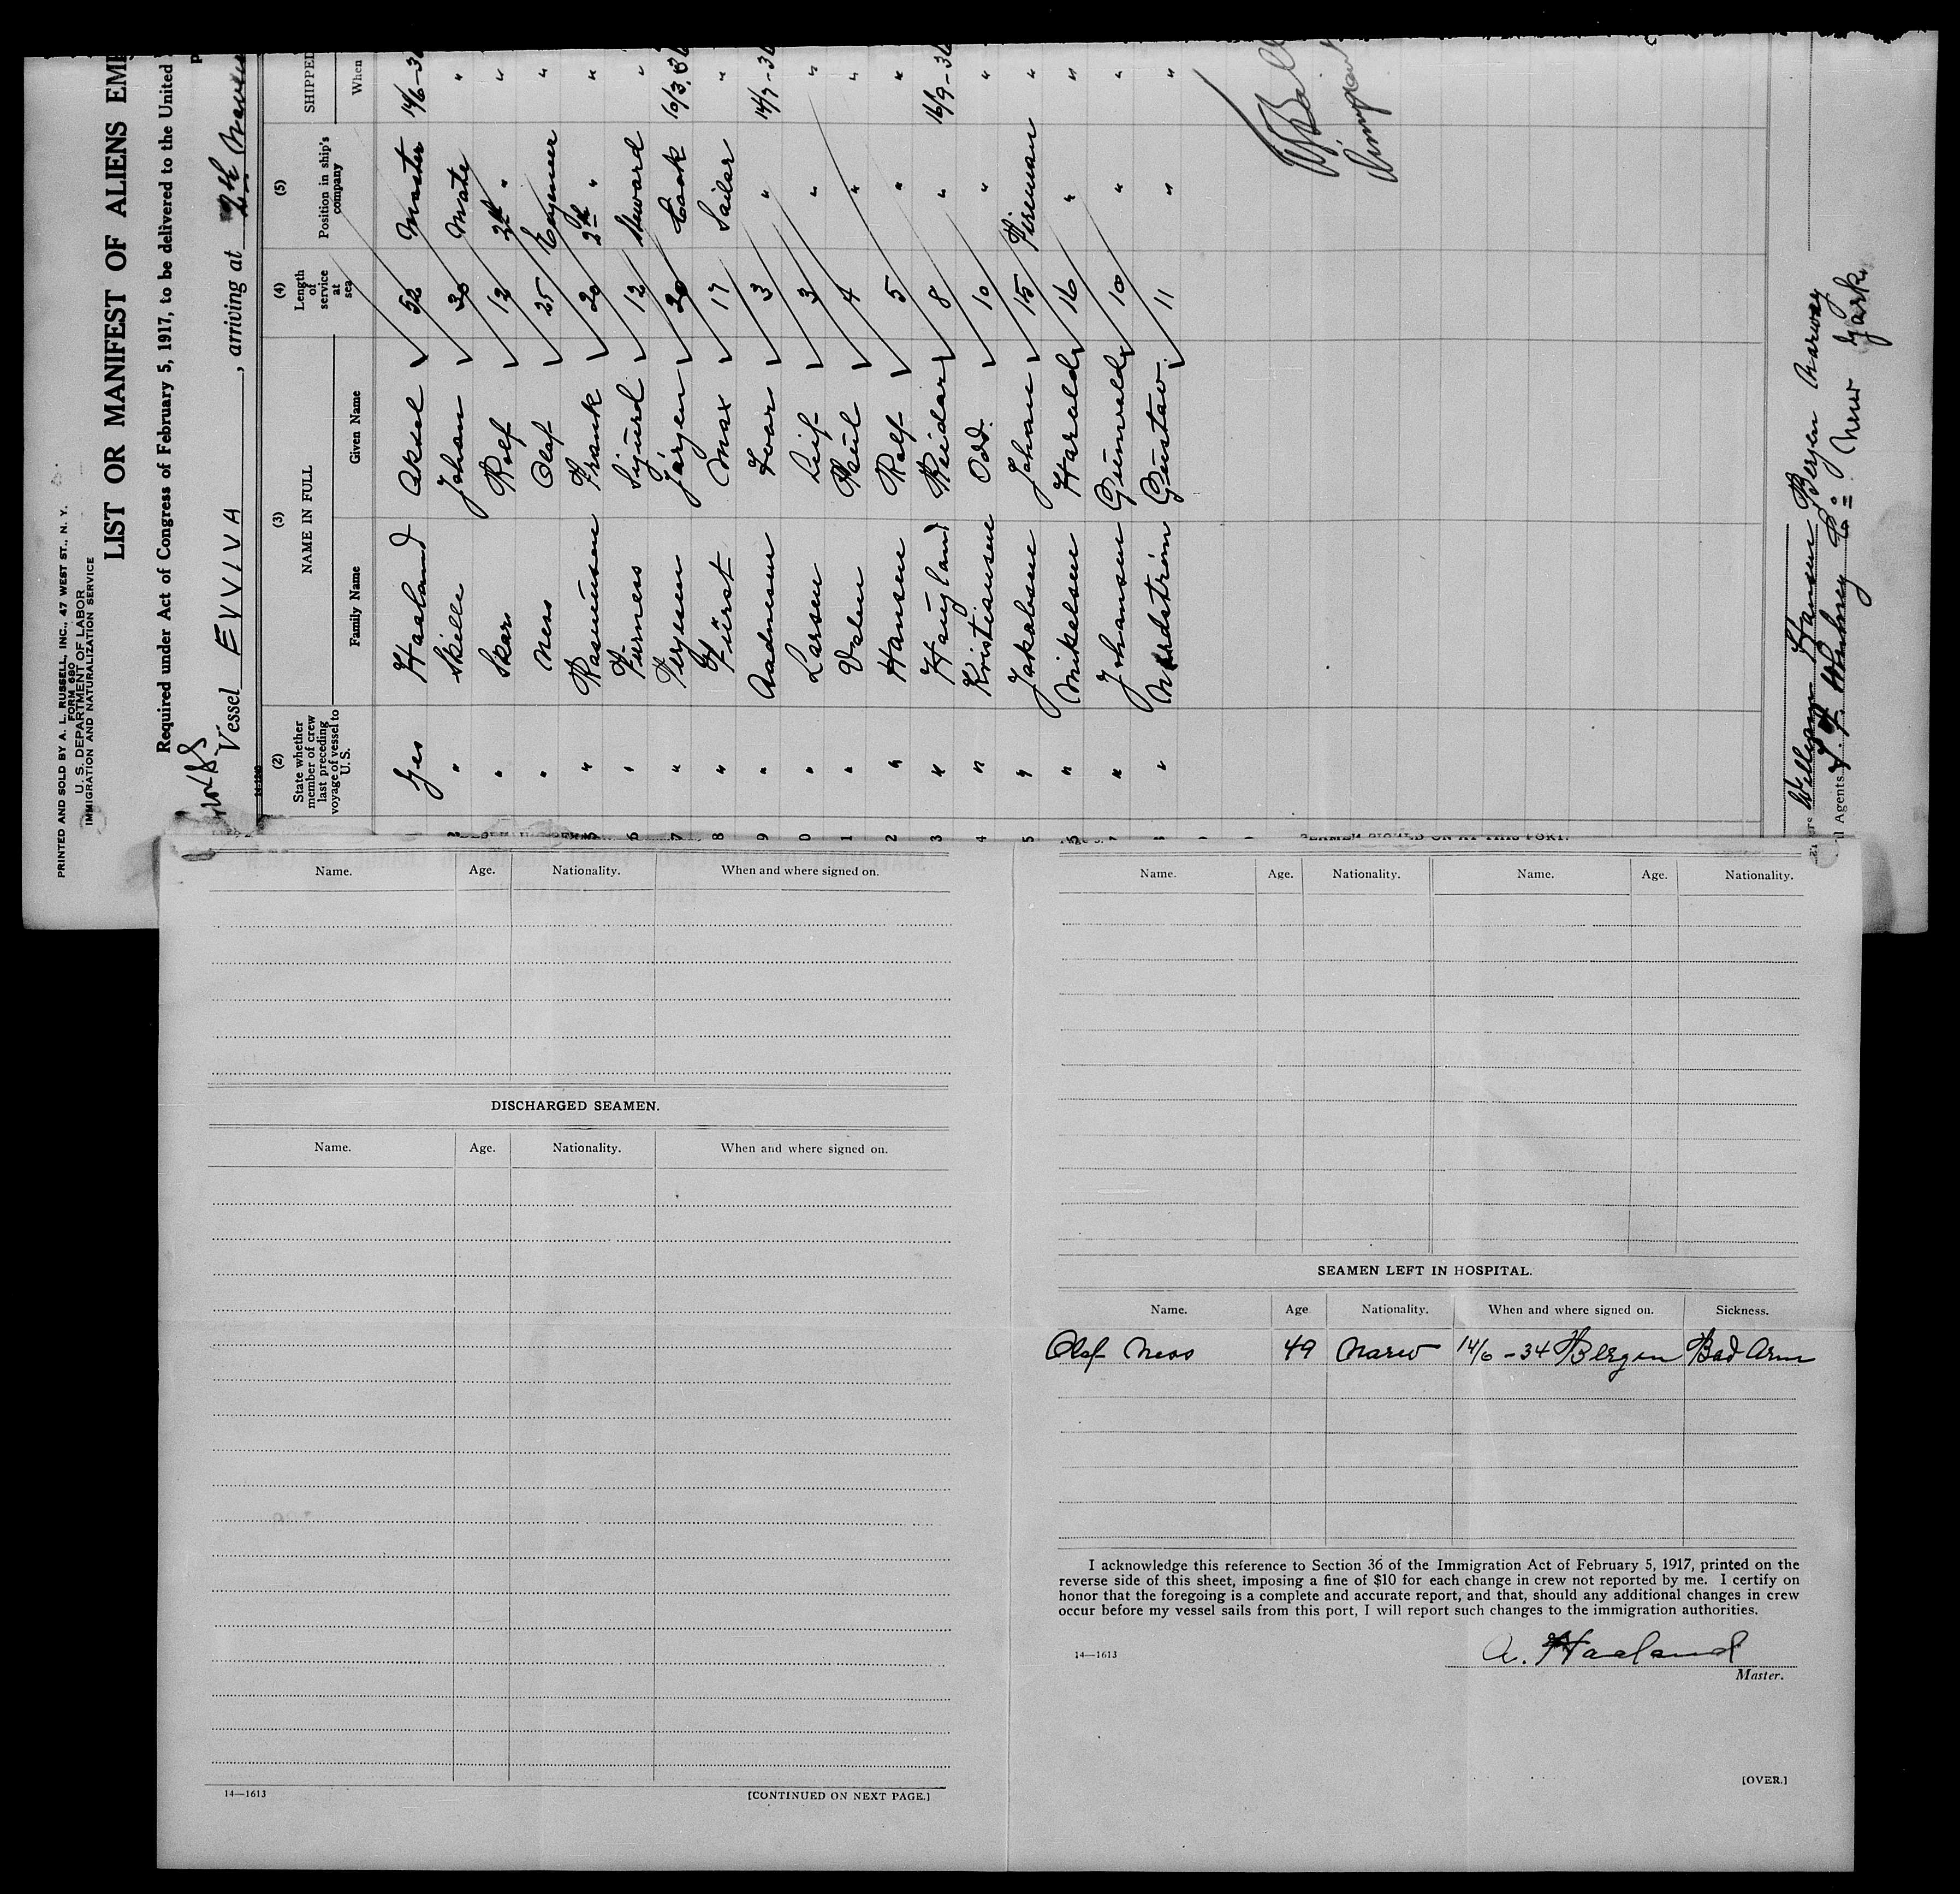 PRINTED AND SOLD BY A. L. RUSSELL, INC., 47 WEST ST., N. Y.
FORM 680
U. S. DEPARTMENT OF LABOR
IMMIGRATION AND NATURALIZATION SERVICE
LIST OR MANIFEST OF ALIENS EMP
Required under Act of Congress of February 5, 1917, to be delivered to the United
Vessel EVVIVA , arriving at
14-1240
(2) (3) (4) (5)
State whether member of crew last preceding voyage of vessel to U. S. NAME IN FULL Length of service at sea Position in ship's company SHIPPED
Family Name Given Name When
Yes Haaland Aksel 52 Master 14/6-3
" Skille Johan 30 Mate "
" Skar Rolf 12 2nd " "
" Ness Olaf 25 Engineer "
5 " Rasmussen Frank 20 2nd " "
6 " Furness Sigurd 12 Steward "
7 " Terjesen Jørgen 20 Cook 10/3.3
8 " Fürst Max 17 Sailor "
9 " Aadnesen Ivar 3 " 14/7-3
0 " Larsen Leif 3 " "
1 " Valen Paul 4 " "
2 " Hansen Rolf 5 " "
3 " Haugland Reidar 8 " 16/9-3
4 " Kristiansen Odd. 10 " "
5 " Jakobsen Johan 15 Fireman "
" Mikelsen Harald 16 " "
" Johansen Gunvald 10 " "
" Nordstrøm Gustav. 11 " "
William Hansen Bergen Norway
l Agents T. F. Whitney Co= New York
SEAMEN SIGNED ON AT THIS PORT.
Name. Age. Nationality. When and where signed on.
DISCHARGED SEAMEN.
Name. Age. Nationality. When and where signed on.
14—1613 [CONTINUED ON NEXT PAGE.]
Name. Age. Nationality. Name. Age. Nationality.
SEAMEN LEFT IN HOSPITAL.
Name. Age Nationality. When and where signed on. Sickness.
Olaf Ness 49 Norw 14/6-34 Bergen Bad Arm
I acknowledge this reference to Section 36 of the Immigration Act of February 5, 1917, printed on the
reverse side of this sheet, imposing a fine of $10 for each change in crew not reported by me. I certify on
honor that the foregoing is a complete and accurate report, and that, should any additional changes in crew
occur before my vessel sails from this port, I will report such changes to the immigration authorities.
A. Haaland
14—1613
Master.
[OVER.]